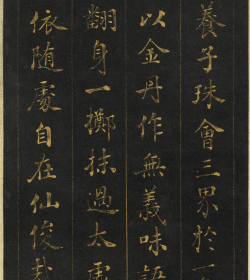 養子珠會三界於一
以金丹作無義味語
翻身一擲抹過太虛
依随處自在仙俊哉